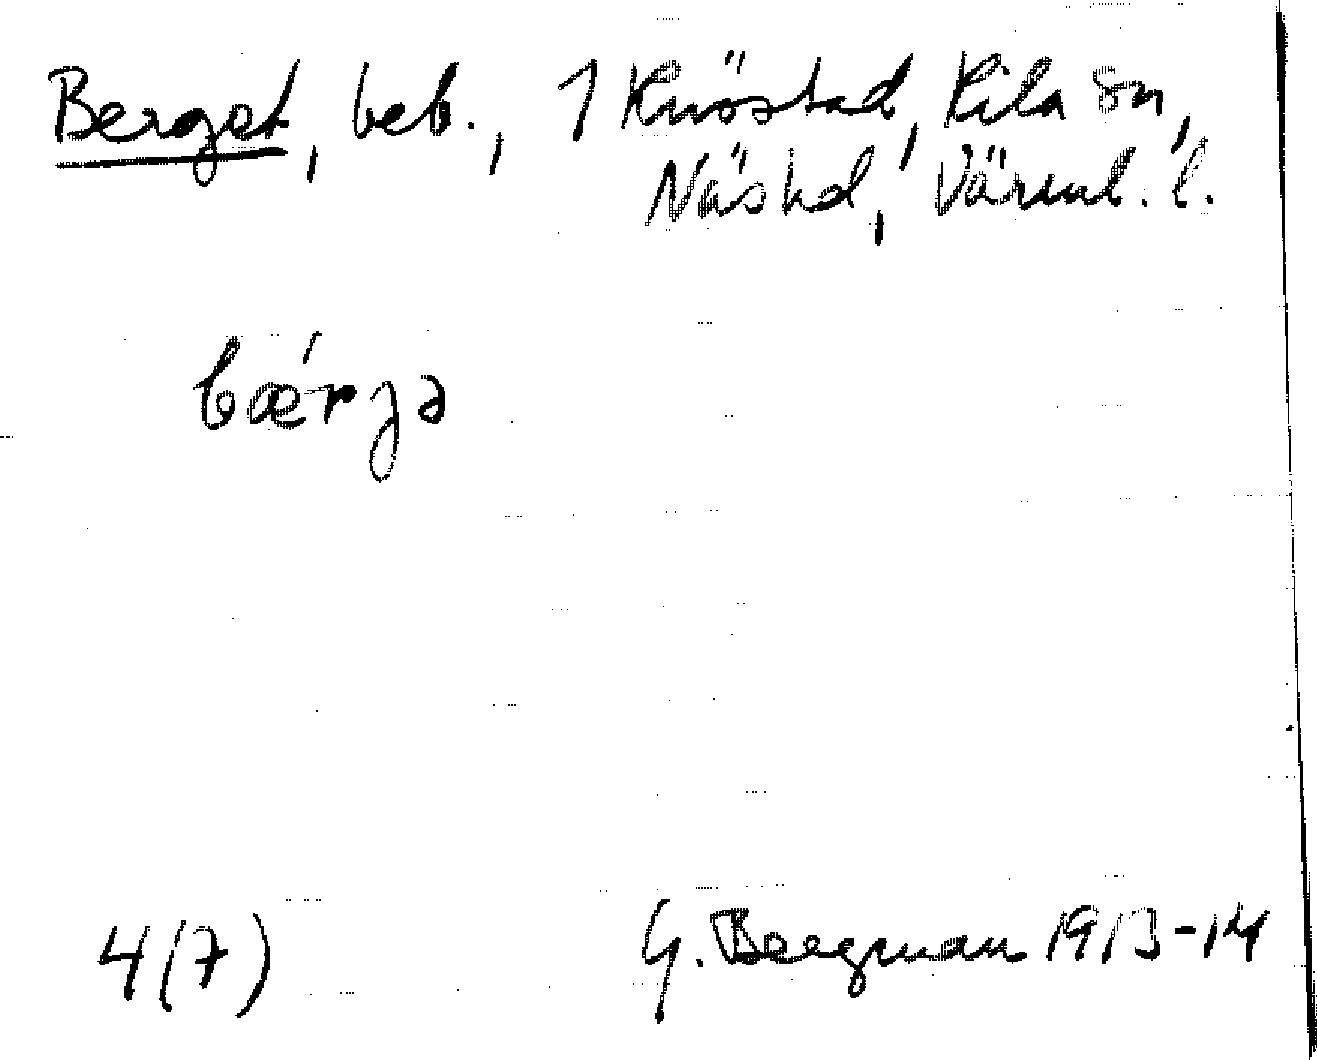 Berget, beb., 1 Knöstad, Kila sn,
Näs hd, Värml. l.
bærjə
4(7)
G. Bergman 1913-14